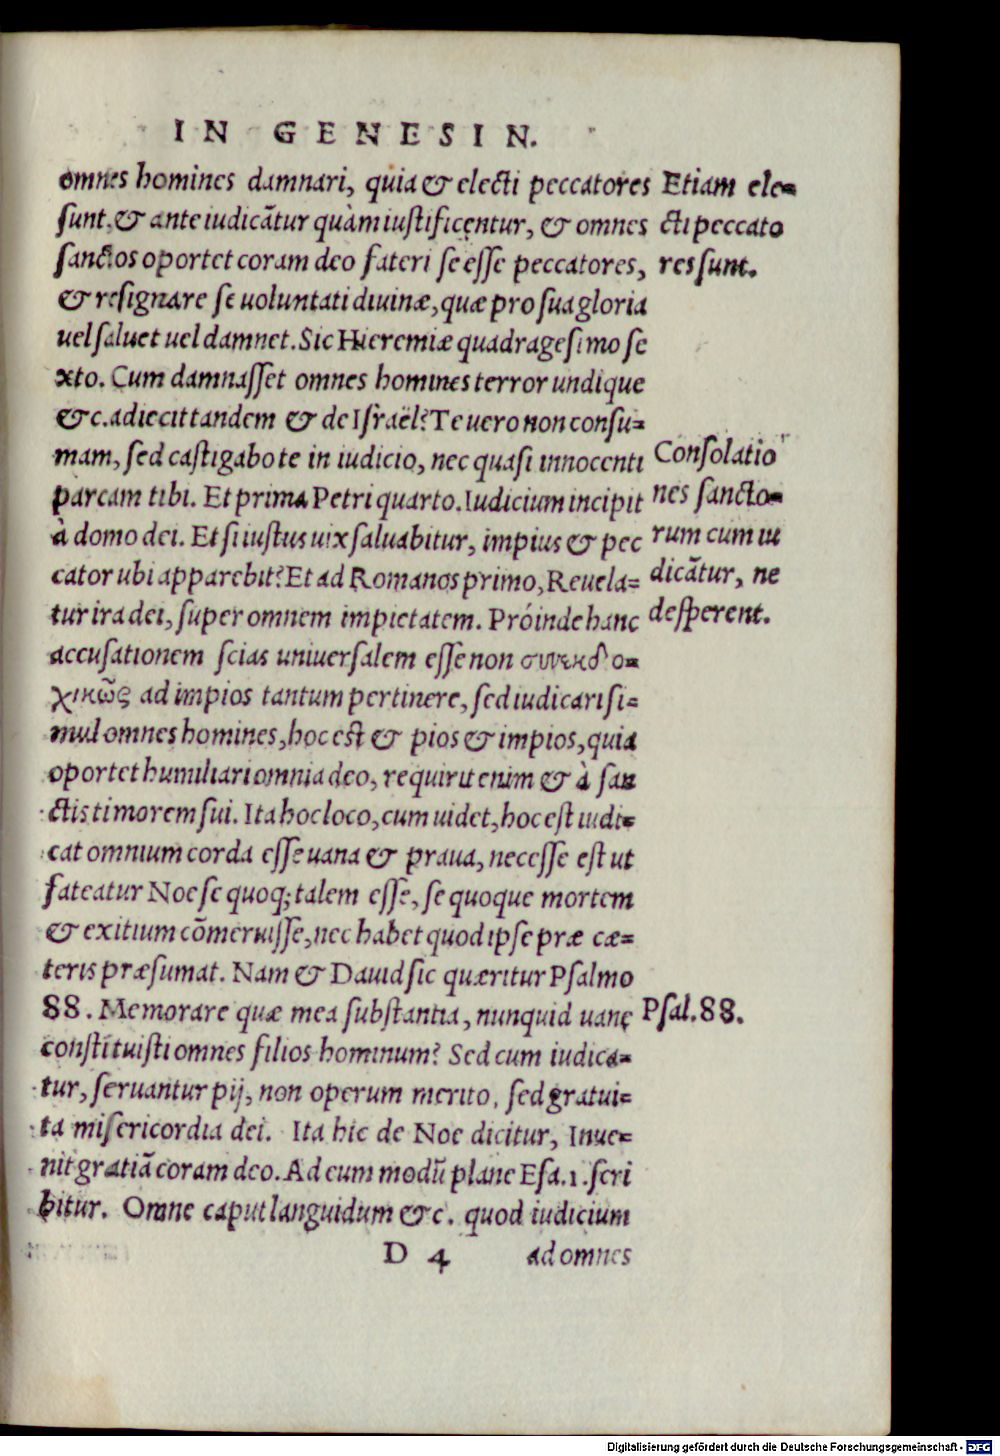 IN GENESIN.
omnes homines damnari, quia & electi peccatores
sunt, & ante iudicātur quàm iustificentur, & omnes
sanctos oportet coram deo fateri se esse peccatores,
& resignare se uoluntati diuinæ, quæ pro sua gloria
uel saluet uel damnet. Sic Hieremiæ quadragesimo se
xto. Cum damnasset omnes homines terror undique
&c. adiecit tandem & de Israël? Te uero non consu=
mam, sed castigabo te in iudicio, nec quasi innocenti
parcam tibi. Et prima Petri quarto. Iudicium incipit
à domo dei. Et si iustus uix saluabitur, impius & pec
cator ubi apparebit? Et ad Romanos primo, Reuela=
tur ira dei, super omnem impietatem. Próinde hanc
accusationem scias uniuersalem esse non συνεκδο=
χικῶς ad impios tantum pertinere, sed iudicari si=
mul omnes homines, hoc est & pios & impios, quia
oportet humiliari omnia deo, requirit enim & à san
ctis timorem sui. Ita hoc loco, cum uidet, hoc est iudi=
cat omnium corda esse uana & praua, necesse est ut
fateatur Noe se quoq; talem esse, se quoque mortem
& exitium cōmeruisse, nec habet quod ipse præ cæ=
teris præsumat. Nam & Dauid sic quæritur Psalmo
88. Memorare quæ mea substantia, nunquid uane
constituisti omnes filios hominum? Sed cum iudica=
tur, seruantur pij, non operum merito, sed gratui=
ta misericordia dei. Ita hic de Noe dicitur, Inue=
nit gratiā coram deo. Ad eum modū plane Esa. 1. scri
bitur. Omne caput languidum &c. quod iudicium
D 4 ad omnes
Etiam ele=
cti peccato
res sunt.
Consolatio
nes sancto=
rum cum iu
dicātur, ne
desperent.
Psal. 88.
Digitalisierung gefördert durch die Deutsche Forschungsgemeinschaft - DFG